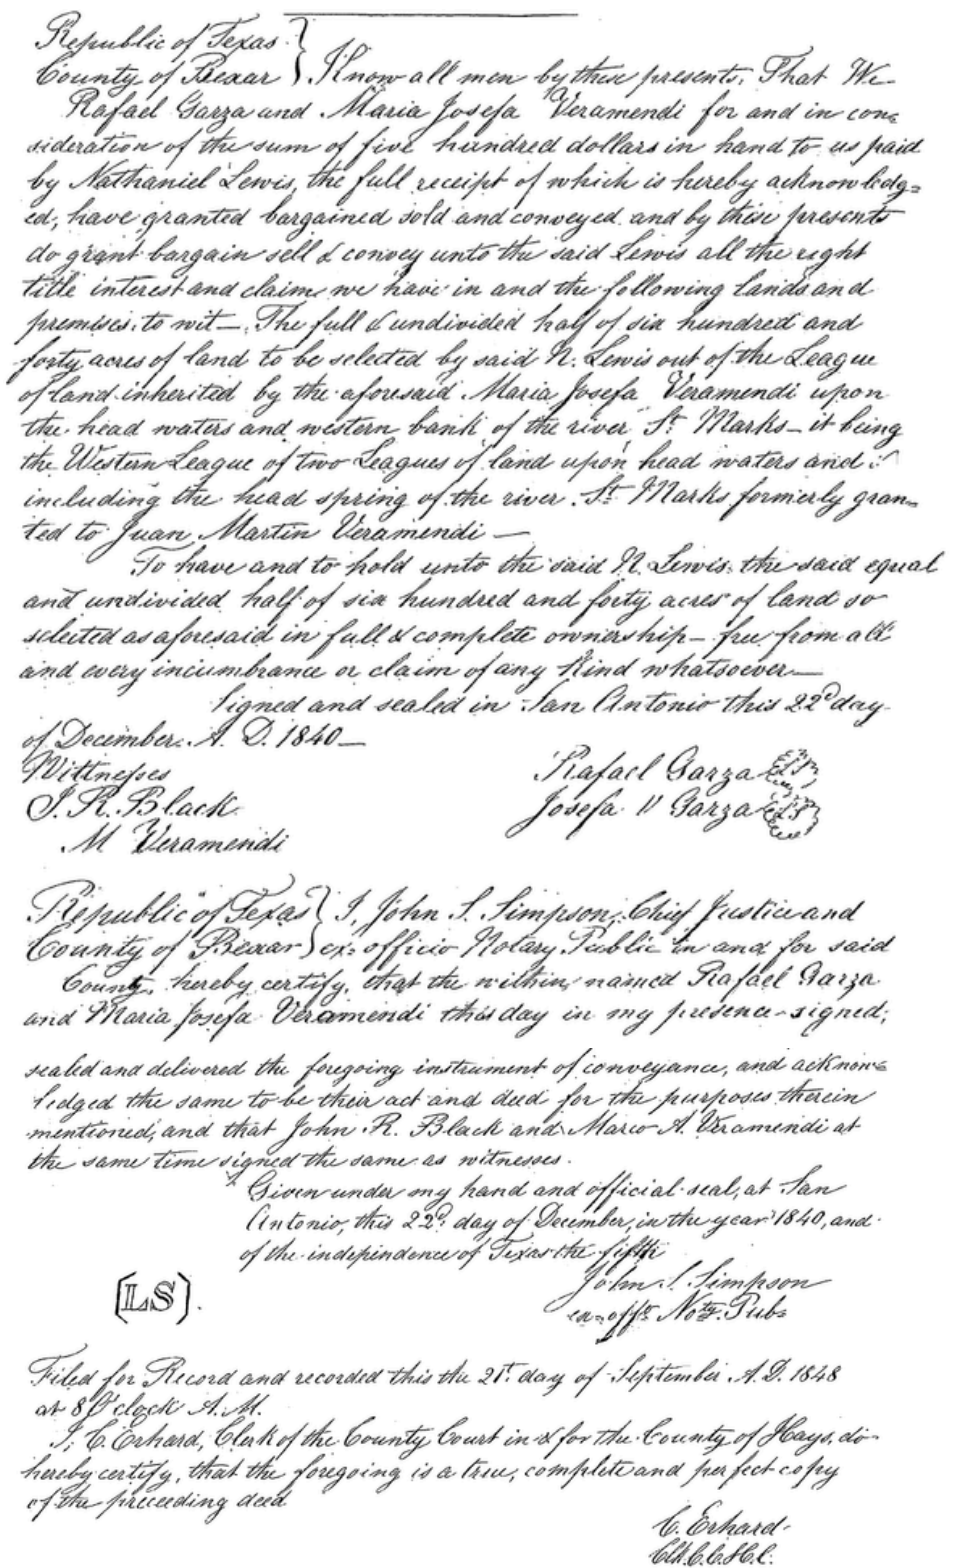 Republic of Texas
County of Bexar } Know all men by these presents, That We
Rafael Garza and Maria Josefa Veramendi for and in con=
sideration of the sum of five hundred dollars in hand to us paid
by Nathaniel Lewis, the full receipt of which is hereby acknowledg=
ed, have granted bargained sold and conveyed and by these presents
do grant bargain sell & convey unto the said Lewis all the right
title interest and claim we have in and the following lands and
premises, to wit — The full & undivided half of six hundred and
forty acres of land to be selected by said N. Lewis out of the League
of land inherited by the aforesaid Maria Josefa Veramendi upon
the head waters and western bank of the river St. Marks — it being
the Western League of two Leagues of land upon head waters and
including the head spring of the river St. Marks formerly gran=
ted to Juan Martin Veramendi —
To have and to hold unto the said N. Lewis, the said equal
and undivided half of six hundred and forty acres of land so
selected as aforesaid in full & complete ownership — free from all
and every incumbrance or claim of any Kind whatsoever —
Signed and sealed in San Antonio this 22d day
of December A. D. 1840 —
Wittnesses
Rafael Garza LS
J. R. Black
Josefa V Garza LS
M Veramendi
Republic of Texas } I, John S. Simpson, Chief Justice and
County of Bexar } ex-officio Notary Public in and for said
County, hereby certify, that the within named Rafael Garza
and Maria Josefa Veramendi this day in my presence signed,
sealed and delivered the foregoing instrument of conveyance, and acknow=
ledged the same to be their act and deed for the purposes therein
mentioned, and that John R. Black and Marco A. Veramendi at
the same time signed the same as witnesses.
Given under my hand and official seal, at San
Antonio, this 22d. day of December, in the year 1840, and
of the independence of Texas the fifth
John S. Simpson
(LS).
ex-offo Noty. Pub=
Filed for Record and recorded this the 21st. day of September A. D. 1848
at 8 O'clock A. M.
I, C. Erhard, Clerk of the County Court in & for the County of Hays, do
hereby certify, that the foregoing is a true, complete and perfect copy
of the preceeding deed
C. Erhard
Clk. C. C. H. C.